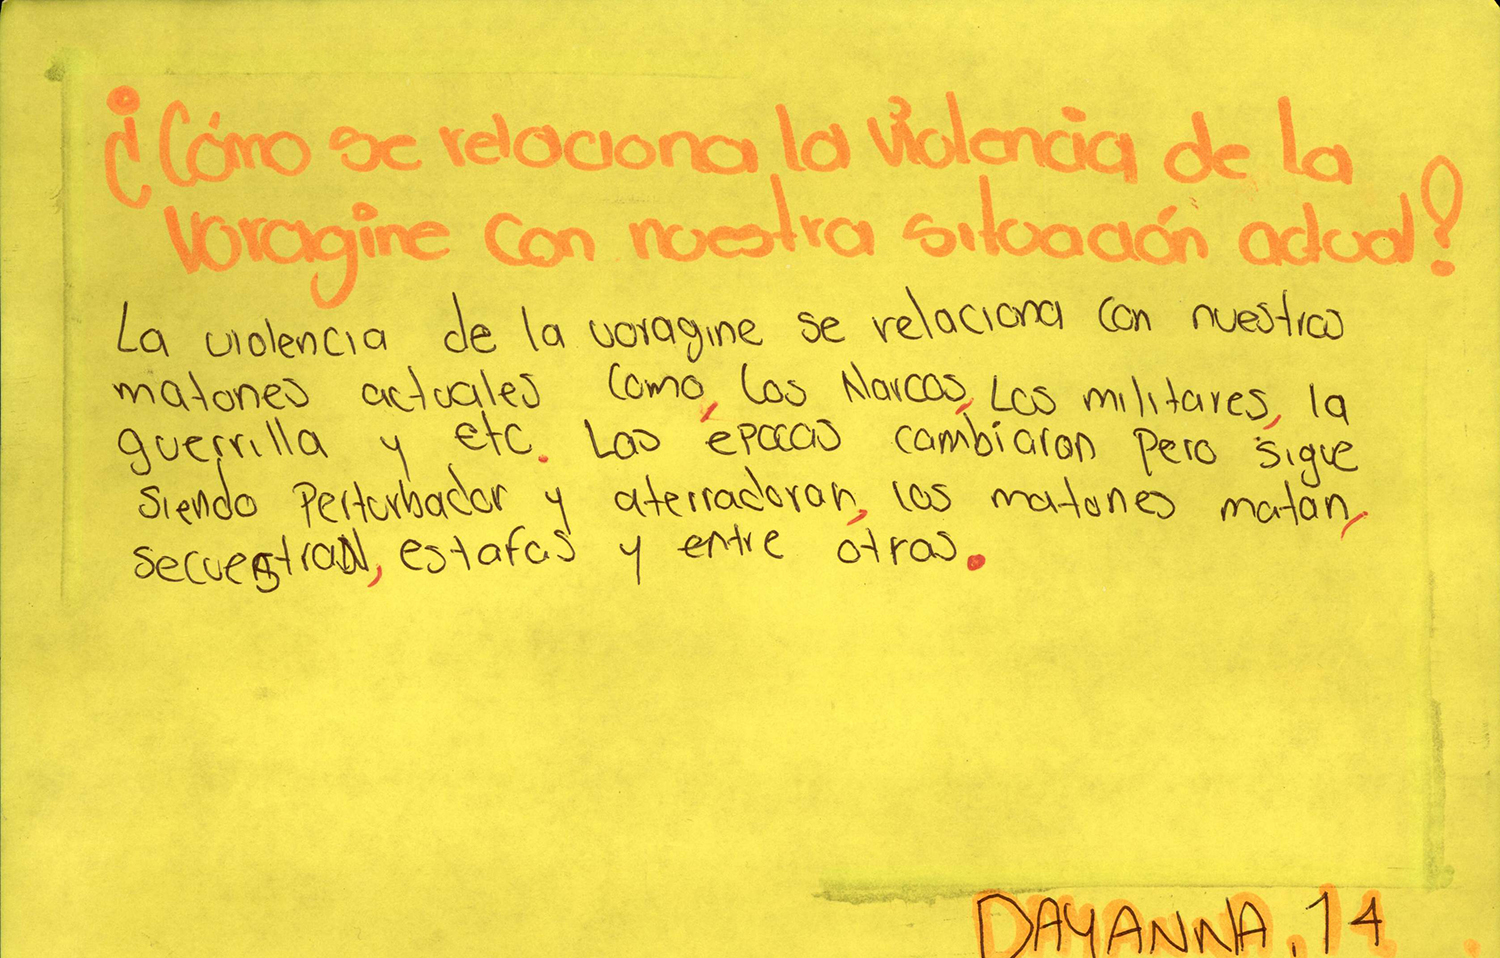 ¿Cómo se relaciona la violencia de la
voragine con nuestra situación actual?
La violencia de la voragine se relaciona con nuestros
matones actuales como, los Narcos, Los militares, la
guerrilla y etc. Las épocas cambiaron pero sigue
siendo perturbador y aterradoran, los matones matan,
secuestran, estafas y entre ótras.
DAYANNA, 14